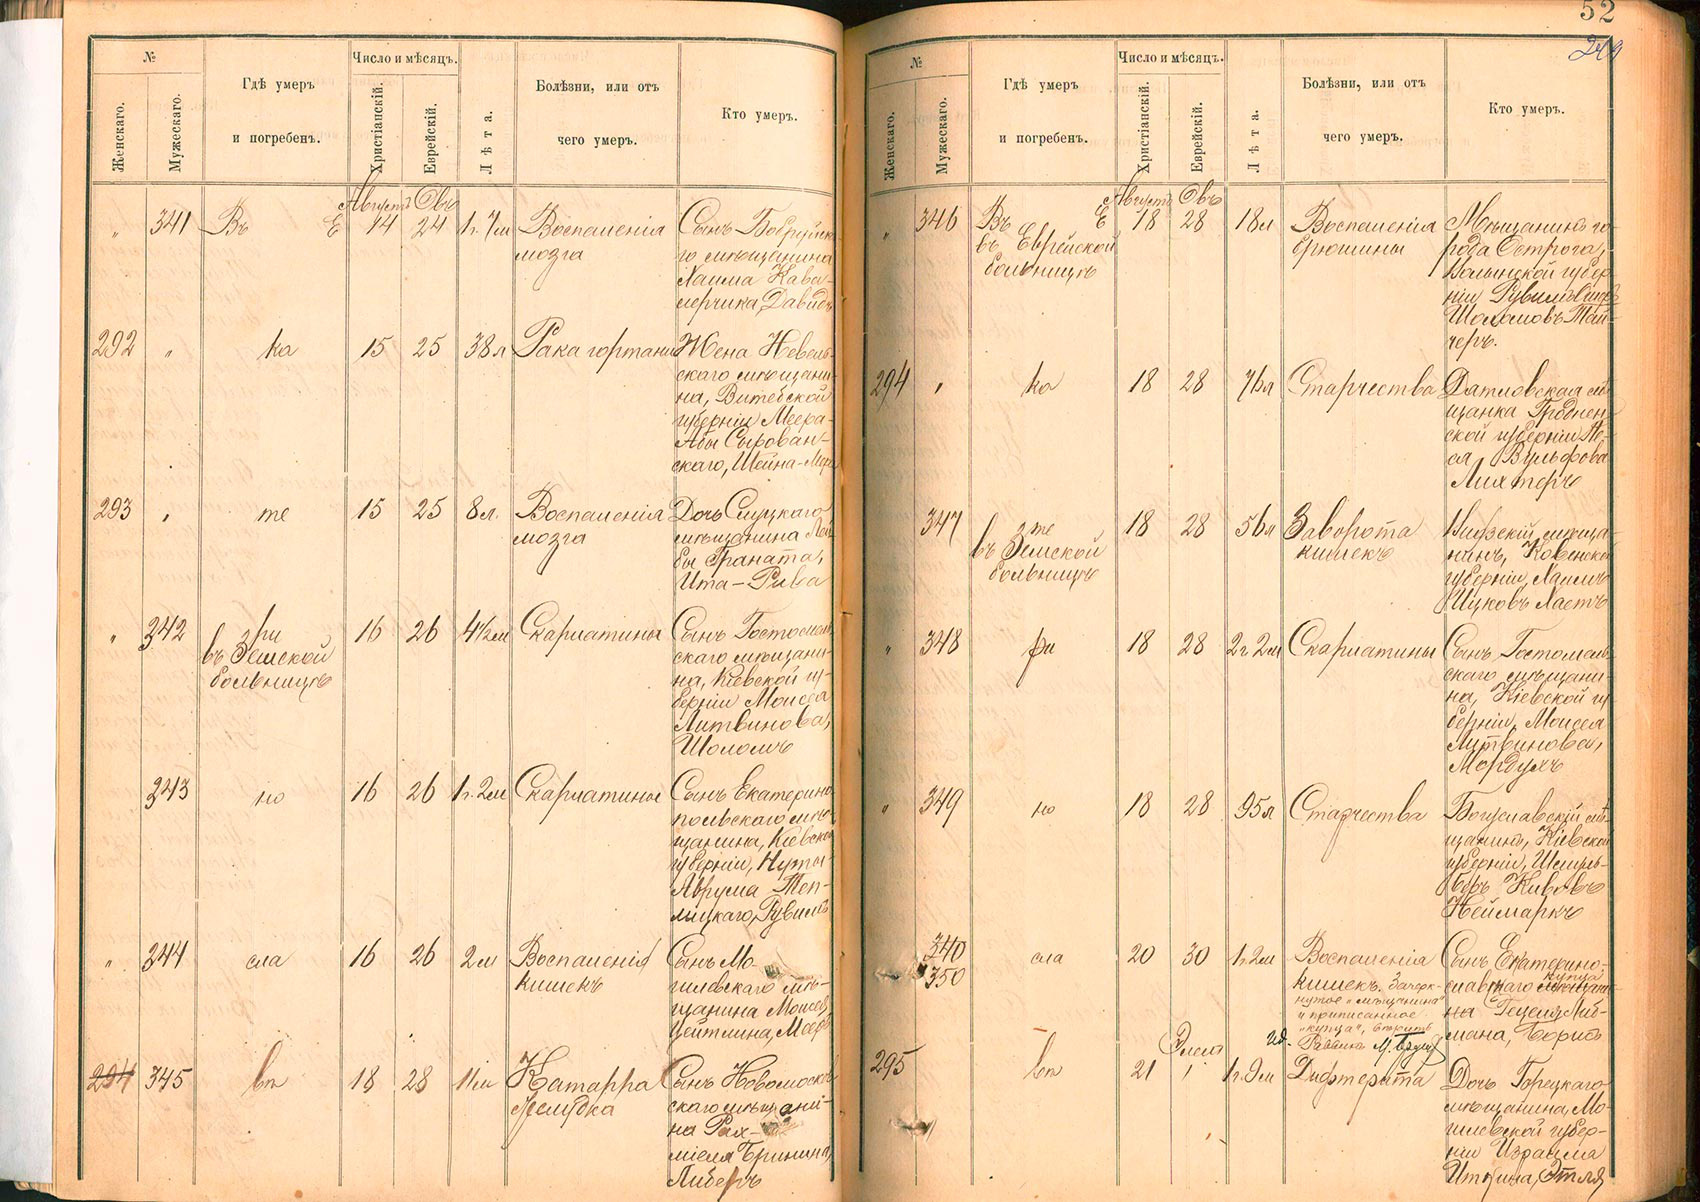 №
Женскаго.
Мужескаго.
Гдѣ умеръ
и погребенъ.
Число и мѣсяцъ.
Христіанскій.
Еврейскій.
Лѣта.
Болѣзни, или отъ
чего умеръ.
Кто умеръ.
Августъ Овъ
„ 341 Въ Е 14 24 1г. 7м Воспаленія
мозга
Сынъ Бобруйска-
го мѣщанина
Хаима Кава-
лерчика, Давидъ
292 „ ка 15 25 38л Рака гортани
Жена Невель-
скаго мѣщани-
на, Витебской
губерніи Меера-
Абы Сырован-
скаго, Шейна-
293 „ те 15 25 8л. Воспаленія
мозга
Дочь Слуцкаго
мѣщанина Лей
бы Граната,
Ита-Рива
„ 342 ри
въ Земской
больницѣ
16 26 4½м Скарлатины
Сынъ Гостомель
скаго мѣщани-
на, Кіевской гу-
берніи Моисея
Литвинова,
Шоломъ
343 но 16 26 1г. 2м Скарлатины
Сынъ Екатерино
польскаго мѣ-
щанина, Кіевской
губерніи, Нуты-
Аврума Теп-
лицкаго, Рувимъ
„ 344 сла 16 26 2м Воспаленія
кишекъ
Сынъ Мо-
гилевскаго мѣ-
щанина Моисея
Цейтлина, Мееръ
294 345 вп 18 28 11м Катарра
желудка
Сынъ Новомосков
скаго мѣщани-
на Рах-
міеля Бринина,
Либеръ
52
№
Женскаго.
Мужескаго.
Гдѣ умеръ
и погребенъ.
Число и мѣсяцъ.
Христіанскій.
Еврейскій.
Лѣта.
Болѣзни, или отъ
чего умеръ.
Кто умеръ.
Августъ Овъ
„ 346 Въ Е
въ Еврейской
больницѣ
18 28 18л Воспаленія
брюшины
Мѣщанинъ го-
рода Острога,
Волынской губер
ніи Рувимъ
Шоломовъ Тай-
черъ.
294 „ ка 18 28 76л Старчества
Дятловская мѣ
щанка Гроднен
ской губерніи
Вульфова
Лихтеръ
347 те
въ Земской
больницѣ
18 28 56л Заворота
кишекъ
мѣща-
нинъ, Ковенской
губерніи, Хаимъ
Ицковъ Хаетъ
„ 348 ри 18 28 2г 2м Скарлатины
Сынъ Гостомель
скаго мѣщани-
на, Кіевской гу
берніи, Моисея
Литвинова,
Мордухъ
„ 349 но 18 28 95л Старчества
Богуславскій мѣ
щанинъ, Кіевской
губерніи, Шмуль-
Беръ Кивовъ
Неймаркъ
340
350
сла 20 30 1г. 2м Воспаленія
кишекъ. Зачерк-
нутое „мѣщанина"
и приписанное
„купца", вѣрить
Раввинъ
Сынъ Екатерино-
славскаго купца мѣщани-
на Гецеля Либ-
мана, Берко
Элелъ
295 вп 21 1 1г. 9м Дифтерита
Дочь Горецкаго
мѣщанина, Мо-
гилевской губер-
ніи Израиля
Иткина, Этля